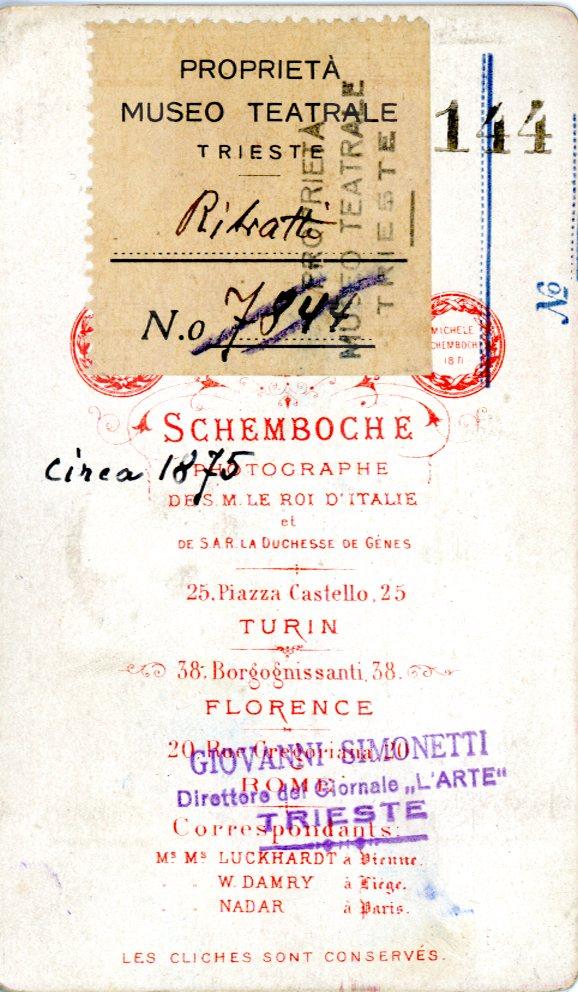 PROPRIETÀ
MUSEO TEATRALE
TRIESTE
Ritratti
N.o 7844
PROPRIETÀ
MUSEO TEATRALE
TRIESTE
144
No
MICHELE
SCHEMBOCHE
SCHEMBOCHE
circa 1875
PHOTOGRAPHE
DE S.M. LE ROI D'ITALIE
et
DE S.A.R. LA DUCHESSE DE GÊNES
25, Piazza Castello, 25
TURIN
38. Borgognissanti, 38.
FLORENCE
20 Rue Gregoriana 20
ROME
GIOVANNI SIMONETTI
Direttore del Giornale „L'ARTE"
TRIESTE
Correspondants:
Ms Ms LUCKHARDT à Vienne.
" " W. DAMRY à Liége.
" " NADAR à Paris.
LES CLICHES SONT CONSERVÉS.